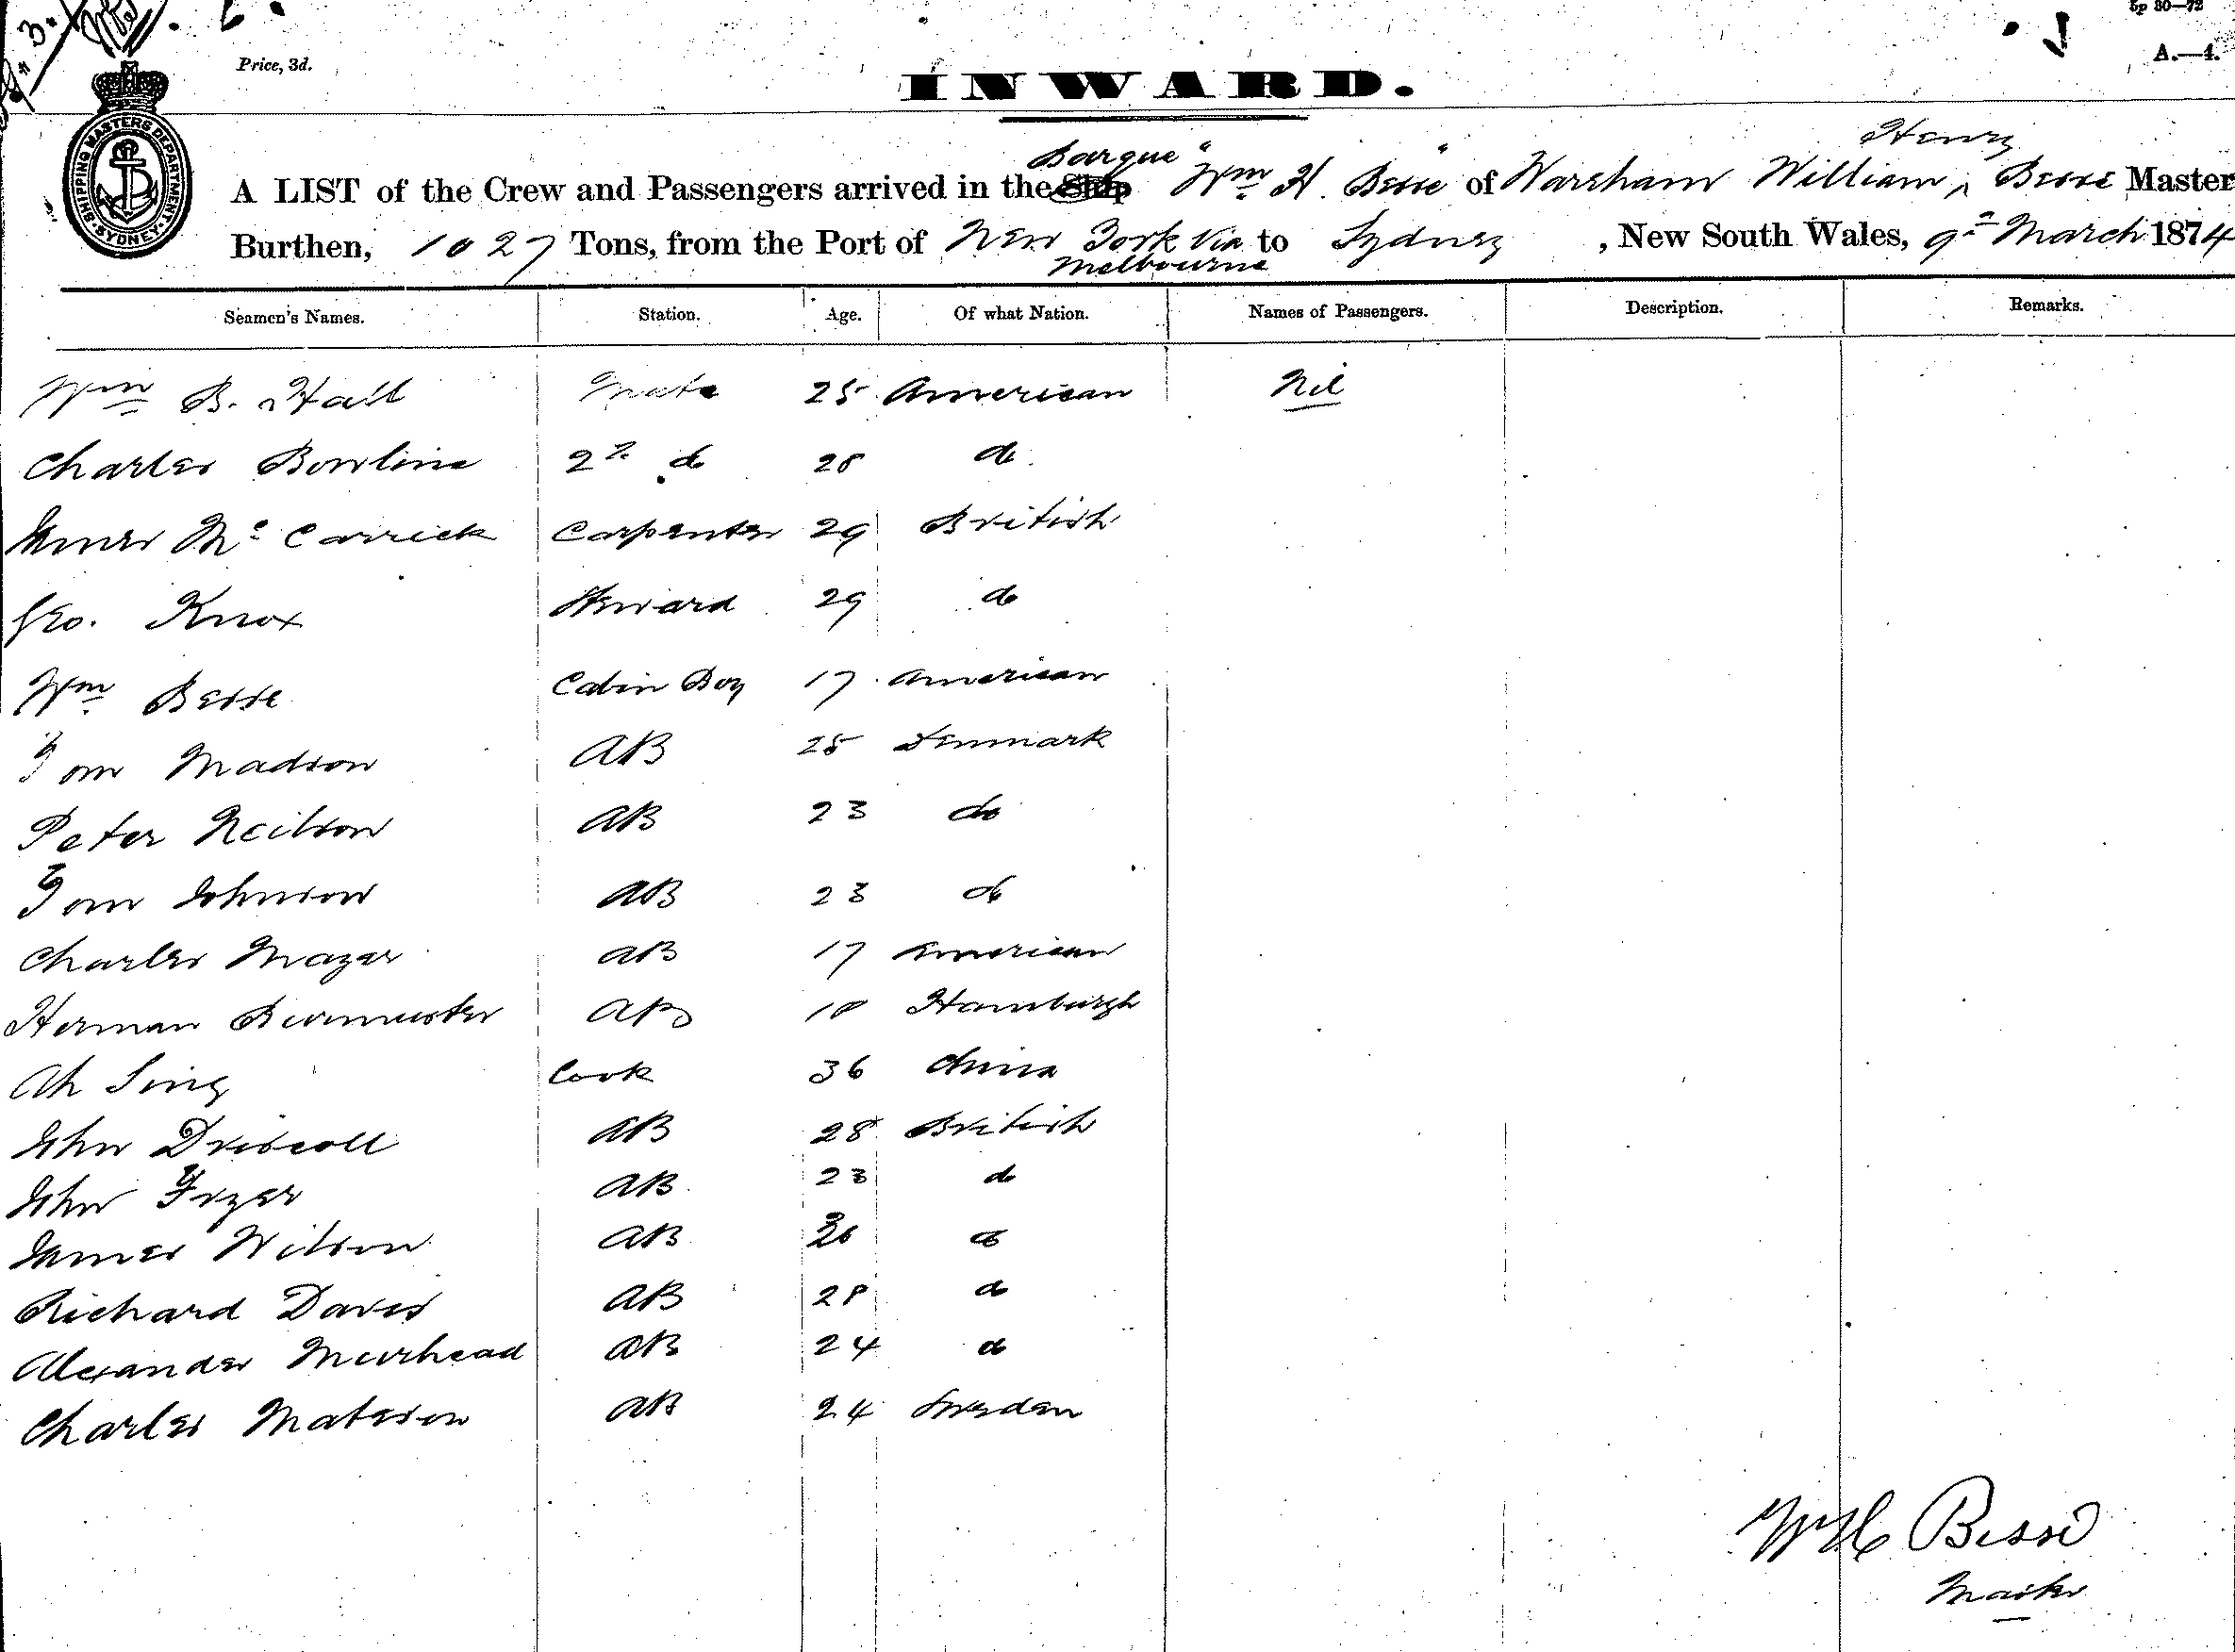 Price, 3d.
A.—4.
INWARD.
SHIPPING MASTERS DEPARTMENT
SYDNEY
Barque Henry
A LIST of the Crew and Passengers arrived in the Ship "Wm H. Besse" of Warsham William ^ Besse Master
Burthen, 1027 Tons, from the Port of New York Via to Sydney, New South Wales, 9th March 1874
Melbourne
Seamen's Names. Station. Age. Of what Nation. Names of Passengers. Description. Remarks.
Wm B. Hall Mate 25 American Nil
Charles Bowline 2d do 28 do
James Mc Carrick Carpenter 29 British
Geo. Knox Steward 29 do
Wm Besse Cabin Boy 17 American
Tom Madson AB 25 Denmark
Peter Neilson AB 23 do
Tom Johnson AB 23 do
Charles Mazar AB 17 American
Herman AB 18 Hamburgh
Ah Sing Cook 36 China
John Driscoll AB 28 British
John Frzer AB 23 do
James Wilson AB do
Richard Davis AB 28 do
Alexander Muirhead AB 24 do
Charles Mateson AB 24 Sweden
WH Besse
Master